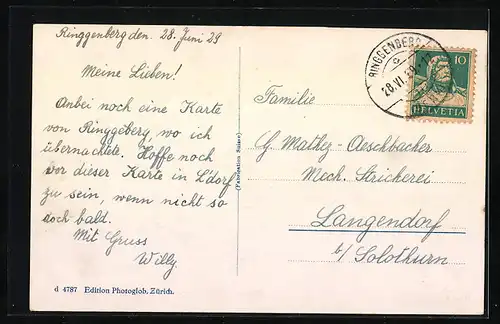 Ringgenberg den. 28. Juni 29
Meine Lieben!
Anbei noch eine Karte
von Ringgeberg, wo ich
übernachtete. Hoffe noch
vor dieser Karte in L'dorf
zu sein, wenn nicht so
doch bald.
Mit Gruss
Willy.
d 4787 Edition Photoglob, Zürich.
RINGGENBERG
28.VI.
10
HELVETIA
Familie
G. Mathez-Aeschbacher
Mech. Strickerei
Langendorf
b/ Solothurn